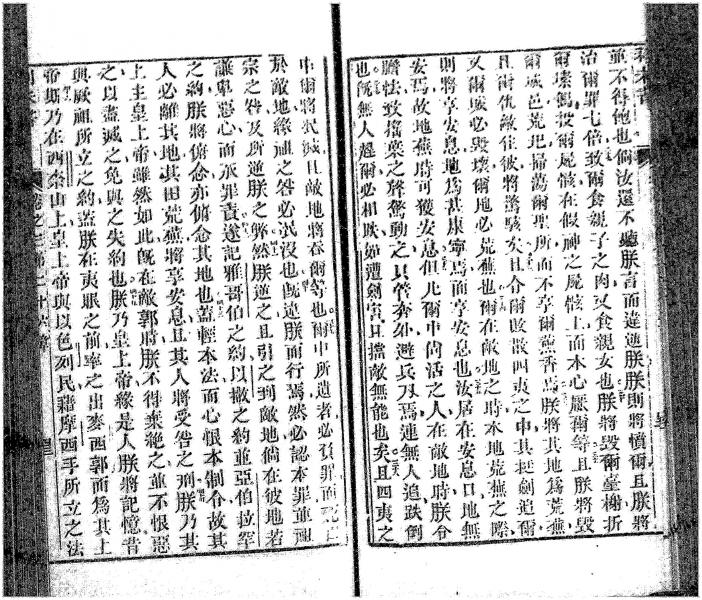 並不得他也倘汝還不聽朕言而違逆朕朕則將憤爾且朕將
治爾罪七倍致爾食親子之肉又食親女也朕將毀爾臺榭折
爾壇偶投爾屍骸在假神之屍骸上而本心厭爾等且朕將毀
爾城邑荒圯掃蕩爾聖所而不享爾薰香焉朕將其地為荒蕪
且爾仇敵住彼將驚駭矣且令爾敗散四夷之中且拔劍追爾
又爾城必毀壞爾地必荒蕪也爾在敵地之時本地荒蕪之際
則將享安息地為其康寧焉而享安息也汝居在安息日地無
安焉故地蕪時可獲安息但凡爾中尚活之人在敵地時朕令
膽怯致搖葉之聲驚動之且皆奔如避兵刃焉連無人追跌倒
也旣無人趕爾必相跌如遭劍害且擋敵無能也矣且四夷之
中爾將泯滅且敵地將吞爾等也爾中所遺者必負罪而死亡
於敵地緣祖之咎必泯沒也旣逆朕而行焉然必認本罪並祖
宗之咎及所逆朕之弊然朕逆之且引之到敵地倘在彼地若
謙卑惡心而承罪責遂記雅哥伯之約以撒之約並亞伯拉罕
之約朕將俯念亦俯念其地也蓋輕本法而心恨本制令故其
人必離其地其田荒蕪將享安息且其人將受咎之刑朕乃其
上主皇上帝雖然如此旣在敵郭時朕不得棄絶之並不恨惡
之以盡滅之免與之失約也朕乃皇上帝緣是人朕將記憶昔
與厥祖所立之約蓋朕在夷眼之前率之出麥西郭而為其上
帝斯乃在西奈山上皇上帝與以色列民藉摩西手所立之法